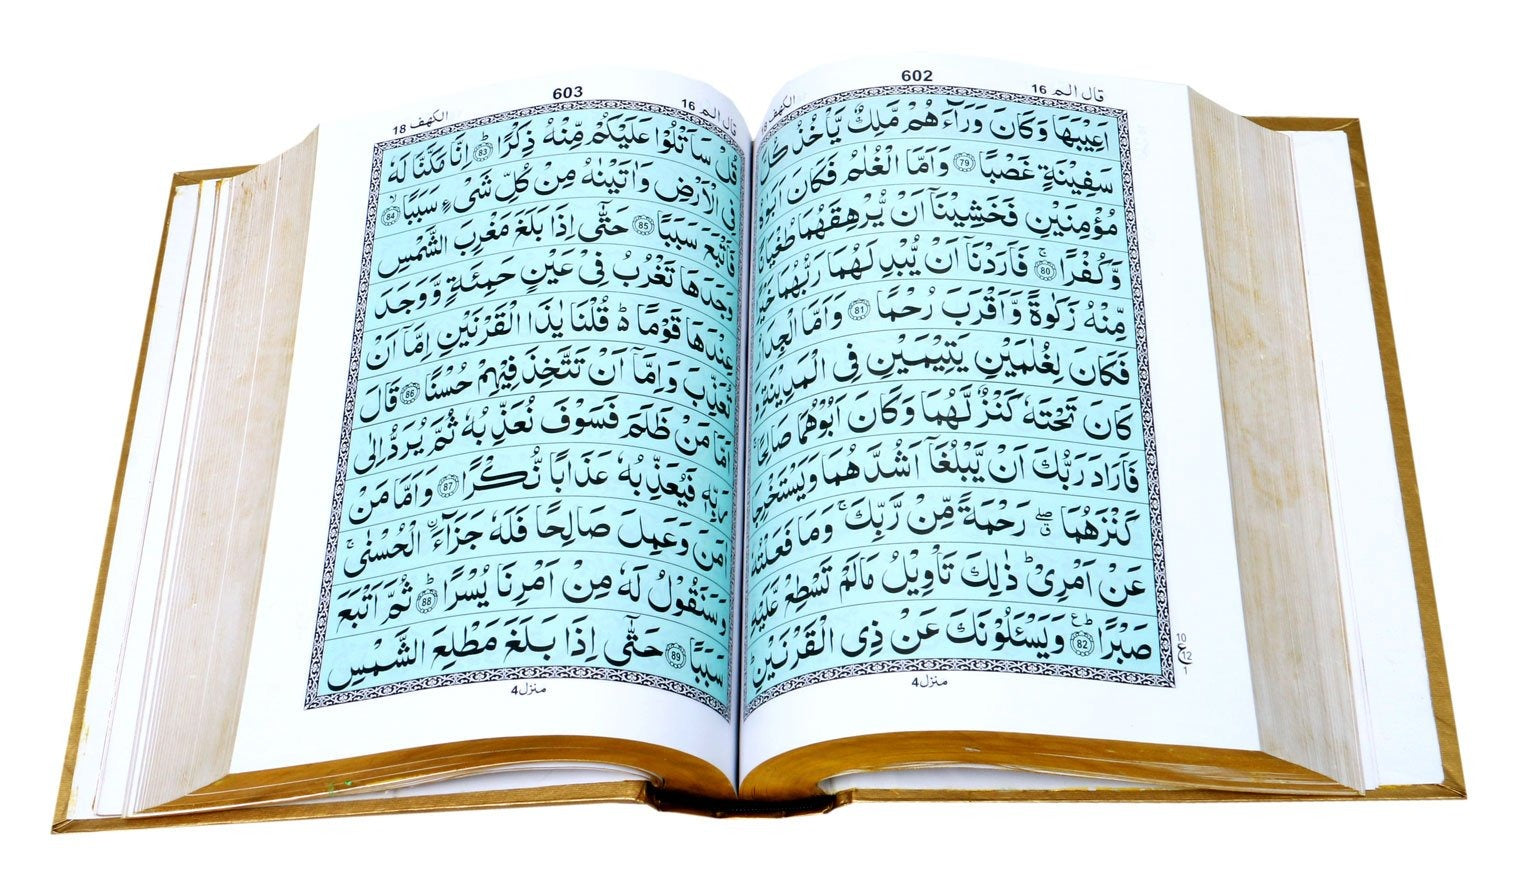 602
قال الم 16
الكهف 18
اَعِيْبَهَا وَكَانَ وَرَآءَهُمْ مَّلِكٌ يَّاْخُذُ
سَفِيْنَةٍ غَصْبًا 79 وَاَمَّا الْغُلٰمُ فَكَانَ اَبَوٰهُ
مُؤْمِنَيْنِ فَخَشِيْنَآ اَنْ يُّرْهِقَهُمَا طُغْيَانًا
وَّكُفْرًا ۚ 80 فَاَرَدْنَآ اَنْ يُّبْدِلَهُمَا رَبُّهُمَا
مِّنْهُ زَكٰوةً وَّاَقْرَبَ رُحْمًا 81 وَاَمَّا الْجِدَارُ
فَكَانَ لِغُلٰمَيْنِ يَتِيْمَيْنِ فِى الْمَدِيْنَةِ وَ
كَانَ تَحْتَهٗ كَنْزٌ لَّهُمَا وَكَانَ اَبُوْهُمَا صَالِحًا
فَاَرَادَ رَبُّكَ اَنْ يَّبْلُغَآ اَشُدَّهُمَا وَيَسْتَخْرِجَا
كَنْزَهُمَا رَحْمَةً مِّنْ رَّبِّكَ ۚ وَمَا فَعَلْتُهٗ
عَنْ اَمْرِىْ ؕ ذٰلِكَ تَاْوِيْلُ مَالَمْ تَسْطِعْ عَّلَيْهِ
صَبْرًا 82 وَيَسْـَٔلُوْنَكَ عَنْ ذِى الْقَرْنَيْنِ ؕ
10
ع
12
1
منزل 4
603
قال الم 16
الكهف 18
قُلْ سَاَتْلُوْا عَلَيْكُمْ مِّنْهُ ذِكْرًا ؕ 83 اِنَّا مَكَّنَّا لَهٗ
فِى الْاَرْضِ وَاٰتَيْنٰهُ مِنْ كُلِّ شَىْءٍ سَبَبًا ۙ 84
فَاَتْبَعَ سَبَبًا 85 حَتّٰٓى اِذَا بَلَغَ مَغْرِبَ الشَّمْسِ
وَجَدَهَا تَغْرُبُ فِىْ عَيْنٍ حَمِئَةٍ وَّوَجَدَ
عِنْدَهَا قَوْمًا ؕ قُلْنَا يٰذَا الْقَرْنَيْنِ اِمَّآ اَنْ
تُعَذِّبَ وَاِمَّآ اَنْ تَتَّخِذَ فِيْهِمْ حُسْنًا 86 قَالَ
اَمَّا مَنْ ظَلَمَ فَسَوْفَ نُعَذِّبُهٗ ثُمَّ يُرَدُّ اِلٰى
رَبِّهٖ فَيُعَذِّبُهٗ عَذَابًا نُّكْرًا 87 وَاَمَّا مَنْ
اٰمَنَ وَعَمِلَ صَالِحًا فَلَهٗ جَزَآءَ ۨ الْحُسْنٰى ۚ
وَسَنَقُوْلُ لَهٗ مِنْ اَمْرِنَا يُسْرًا ؕ 88 ثُمَّ اَتْبَعَ
سَبَبًا 89 حَتّٰٓى اِذَا بَلَغَ مَطْلِعَ الشَّمْسِ
منزل 4